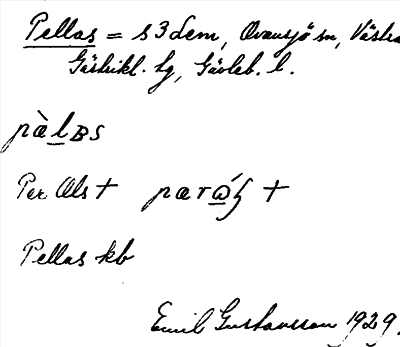 Pellas = s 3 dem, Ovansjö sn, Västra
Gästrikl. hg, Gävleb. l.
pàlBs
Per Ols + pærώʒ +
Pellas kb
Emil Gustavsson 1929.